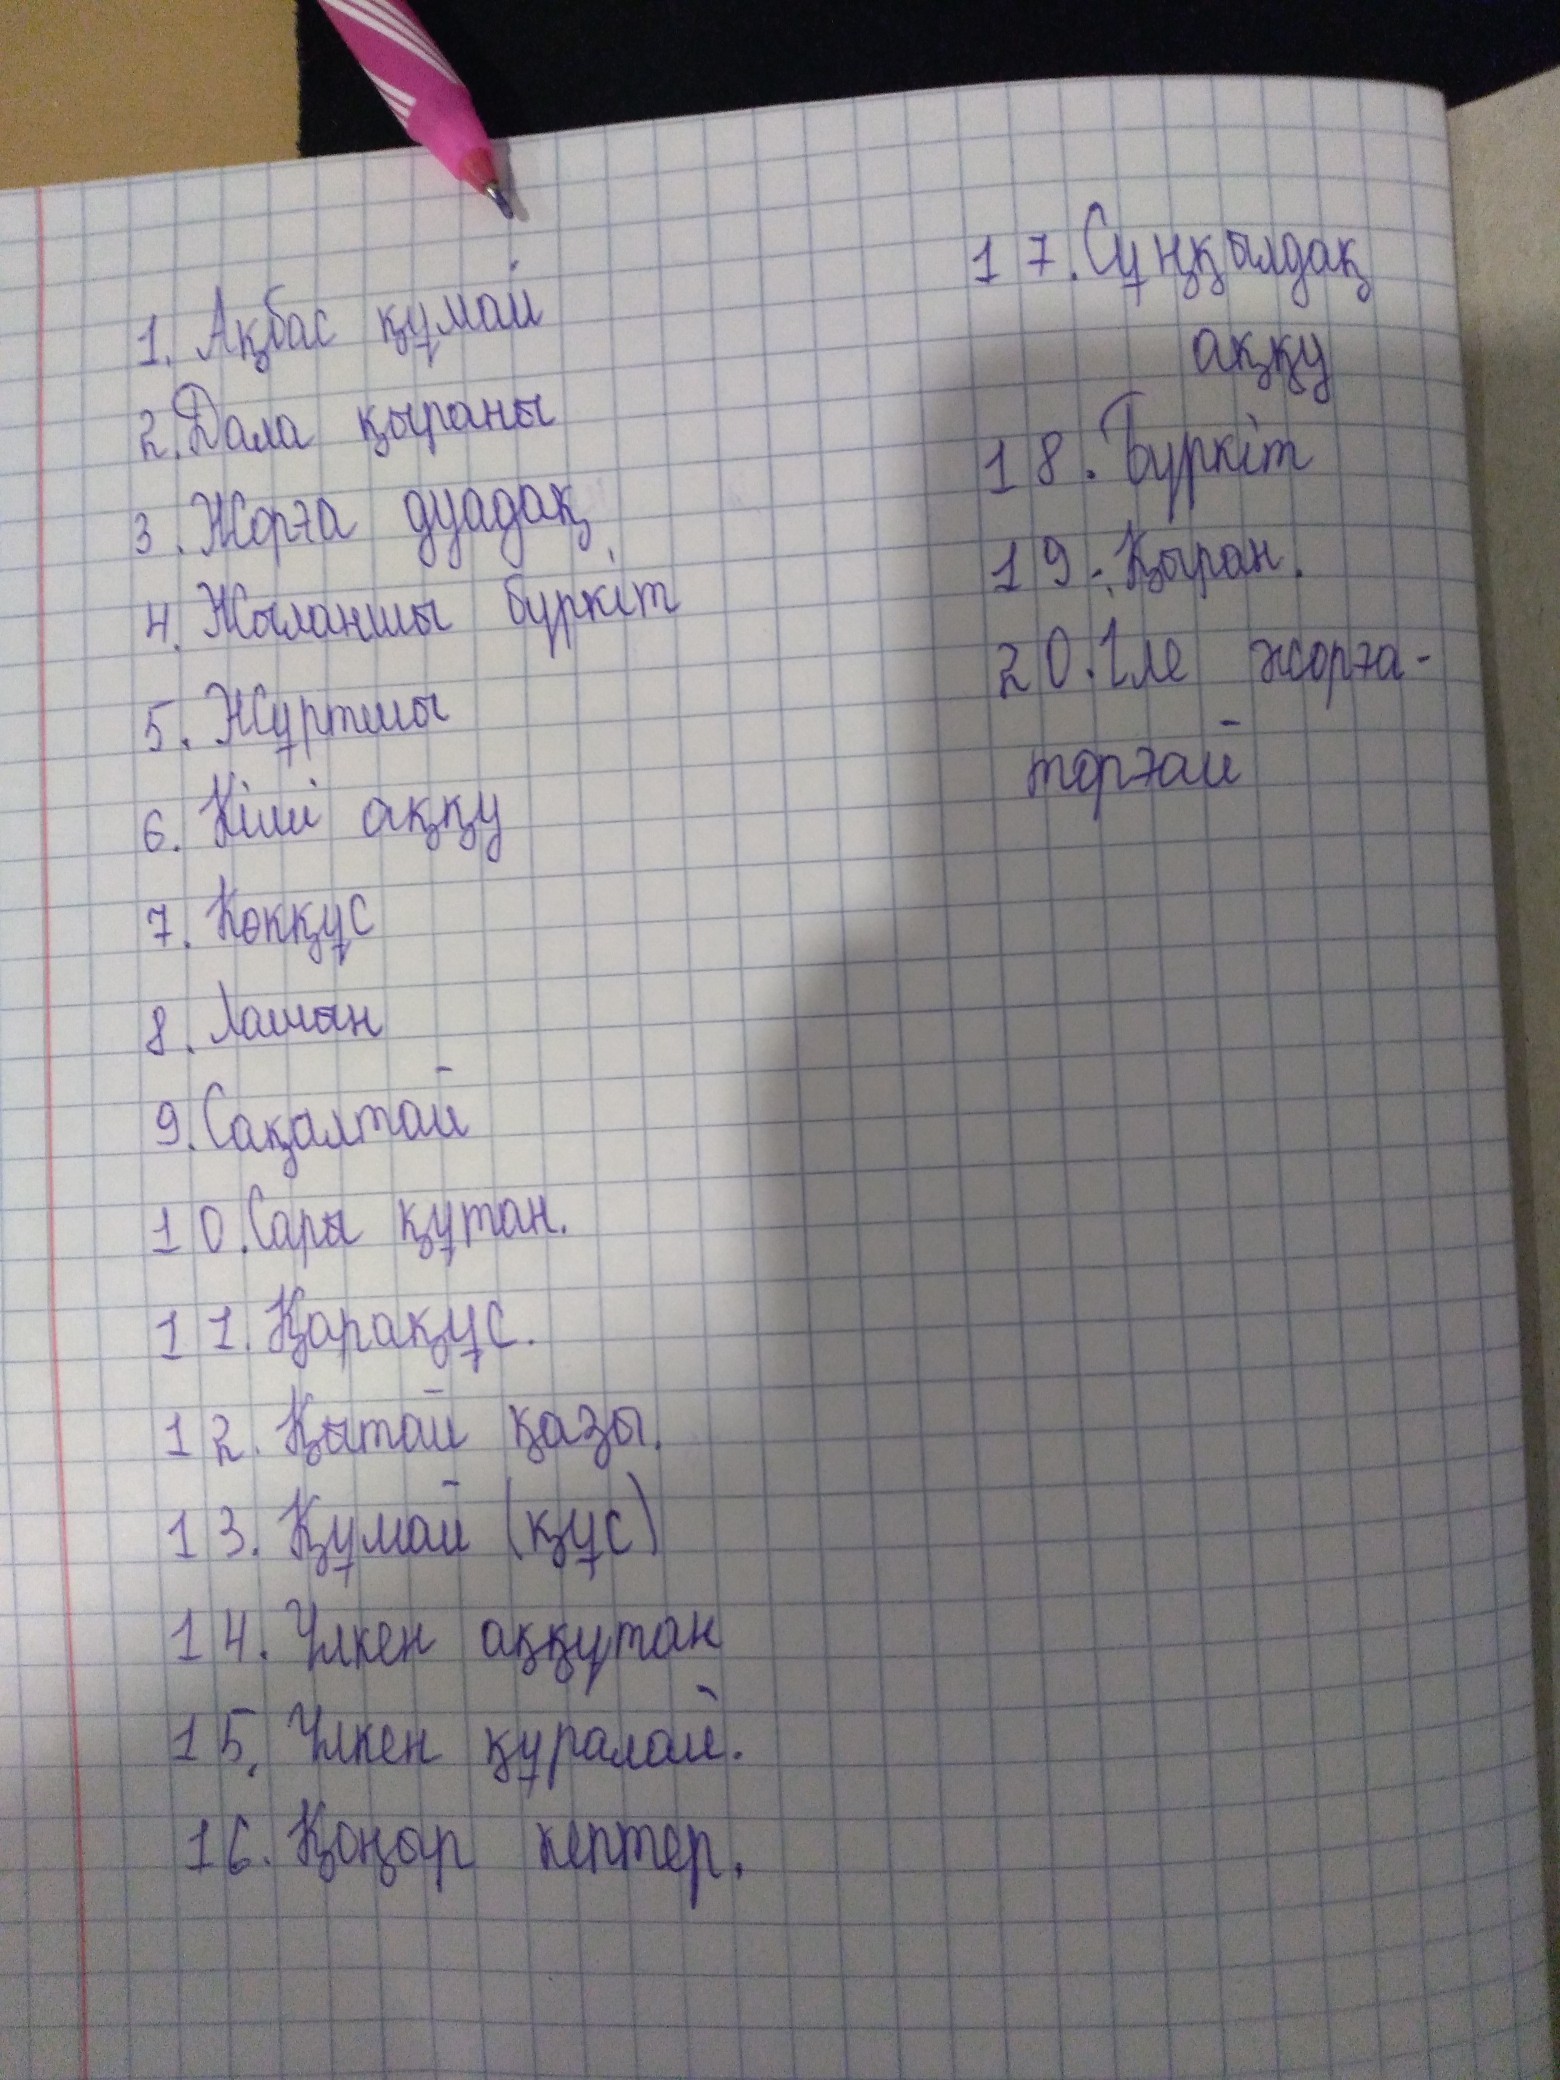 1. Ақбас құмай
2. Дала қыраны
3. Жорға дуадақ
4. Жыланшы бүркіт
5. Жұртшы
6. Кіші аққу
7. Көкқұс
8. Лашын
9. Сақалтай
10. Сары құтан.
11. Қарақұс.
12. Қытай қазы.
13. Құмай (құс)
14. Үлкен аққұтан
15. Үлкен құралай.
16. Қоңыр кептер.
17. Сұңқылдақ
аққу
18. Бүркіт
19. Қыран.
20. Іле жорға-
торғай